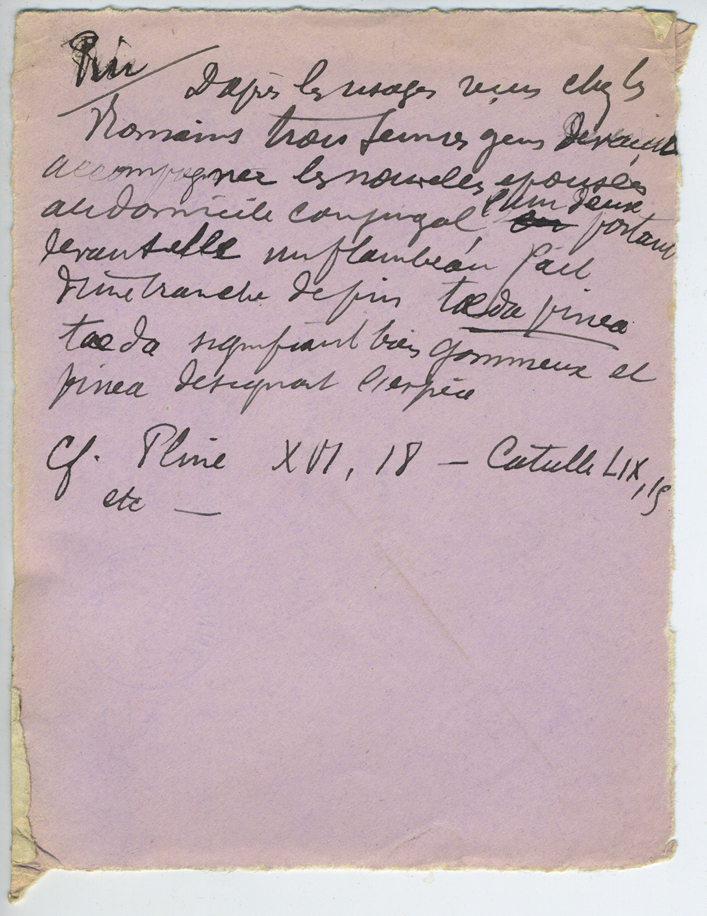 Pin
D'après les usages reçus chez les
Romains trois jeunes gens devaient
accompagner les nouvelles epousées
au domicile conjugal, l'un deux portant
devant elle un flambeau fait
d'une branche de pin tæda pinea
tæda signifiant bois gommeux et
pinea designant l'espèce
Cf. Pline XVI, 18 — Catulle LIX, 15
etc —